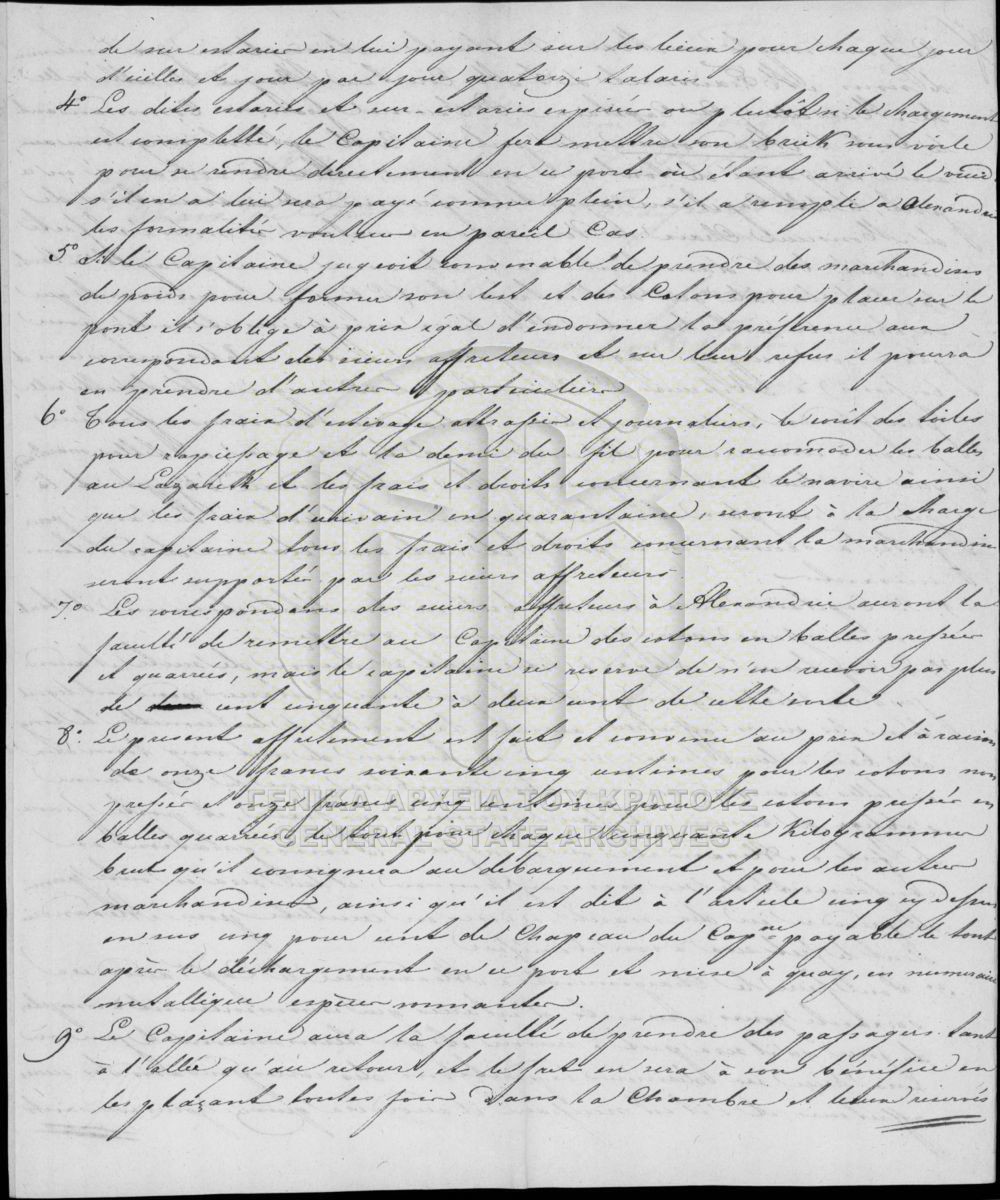 de sur estaries en lui payant sur les lieux pour chaque jour
d'icelles et jour par jour quatorze talaris
4° Les dites estaries et sur-estaries expirées ou plutôt si le chargement
est completté, le Capitaine fera mettre son brick sous voile
pour se rendre directement en ce port où étant arrivé le vuide
s'il en a lui sera payé comme plein, s'il a remplé a Alexandrie
les formalités voulues en pareil Cas.
5° Si le Capitaine jugeoit convenable de prendre des marchandises
de poids pour former son lest et des Cotons pour placer sur le
pont il s'oblige à prix égal d'endonner la préférence aux
correspondant des sieurs affreteurs et sur leur refus il pourra
en prendre d'autres particuliers
6° Tous les frais d'estivage attrapier et journaliers, le coût des toiles
pour rapiessage et la demi du fil pour racomoder les balles
au Lazareth et les frais et droits concernant le navire ainsi
que les frais d'ecrivain en quarantaine, seront à la charge
du capitaine tous les frais et droits concernant la marchandise
seront supportés par les sieurs affreteurs
7° Les correspondans des sieurs affreteurs à Alexandrie auront la
faculté de remettre au Capitaine des cotons en balles pressées
et quarrées, mais le capitaine se reserve de n'en recevoir pas plus
de cent cinquante à deux cent de cette sorte
8° Le present affretement est fait et convenu au prix et à raison
de onze francs soixante cinq centimes pour les cotons non
pressés et onze francs cinq centimes pour les cotons pressés en
balles quarrées le tout pour chaque cinquante Kilogrammes
brut qu'il consignera au débarquement et pour les autres
marchandises, ainsi qu'il est dit à l'article cinq cy dessus
en sus cinq pour cent de Chapeau du Capne payable le tout
après le déchargement en ce port et mise à quay, en numeraire
metallique espèces sonnantes.
9° Le Capitaine aura la faculté de prendre des passagers tant
à l'allée qu'au retour, et le fret en sera à son bénéfice en
les plaçant toutes fois Dans la Chambre et lieux reservés
ΓΕΝΙΚΑ ΑΡΧΕΙΑ ΤΟΥ ΚΡΑΤΟΥΣ
GENERAL STATE ARCHIVES